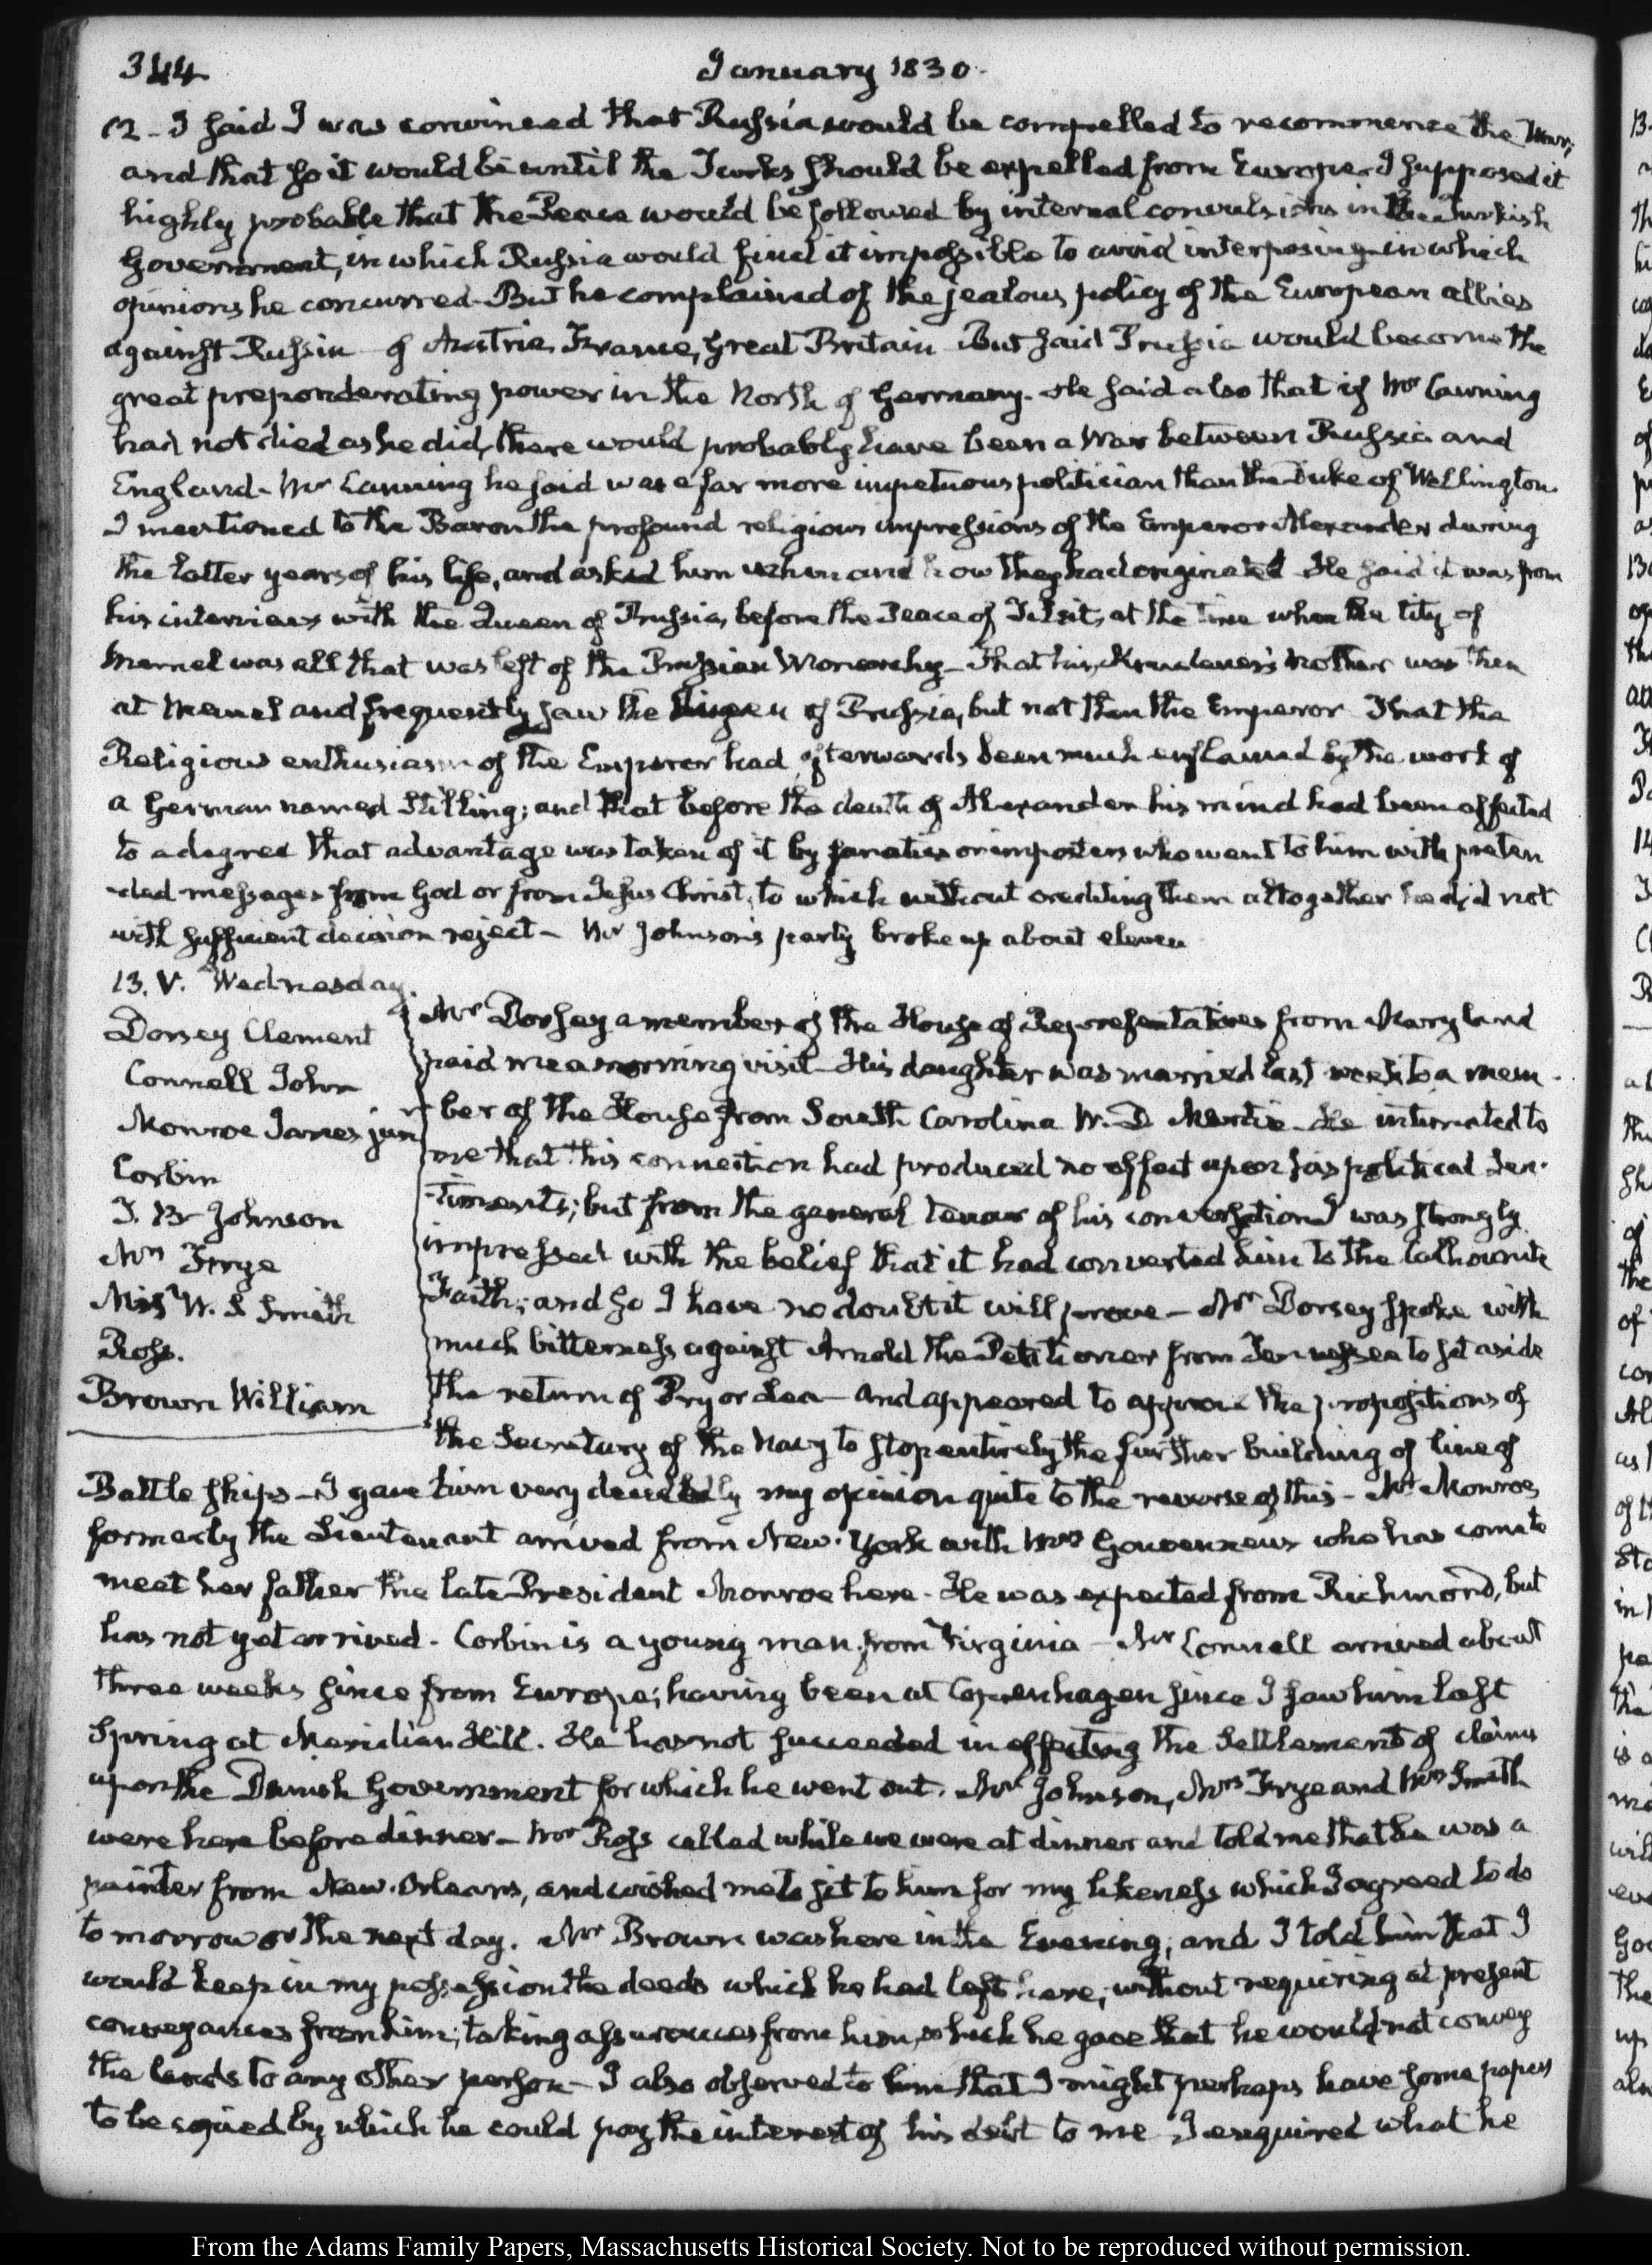 344
January 1830.
12 - I said I was convinced that Russia would be compelled to recommence the War;
and that so it would be until the Turks should be expelled from Europe. I supposed it
highly probable that the Peace would be followed by internal convulsions in the Turkish
Government, in which Russia would find it impossible to avoid interposing in which
opinions he concurred. But he complained of the jealous policy of the European allies
against Russia of Austria, France, Great Britain But said Prussia would become the
great preponderating power in the North of Germany. He said also that if Mr Canning
had not died as he did, there would probably have been a War between Russia and
England. Mr Canning he said was a far more impetuous politician than the Duke of Wellington.
I mentioned to the Baron the profound religious impressions of the Emperor Alexander during
the latter years of his life, and asked him when and how they had originated He said it was from
his interviews with the Queen of Prussia, before the Peace of Tilsit, at the time when the City of
Memel was all that was left of the Prussian Monarchy - That his, Krudener's Mother was then
at Memel and frequently saw the Queen of Prussia, but not then the Emperor That the
Religious enthusiasm of the Emperor had afterwards been much enflamed by the work of
a German named Stilling; and that before the death of Alexander his mind had been affected
to a degree that advantage was taken of it by fanatics or imposters who went to him with preten
-ded messages from God or from Jesus Christ, to which without crediting them altogether he did not
with sufficient decision reject - Mr Johnson's party broke up about eleven
13. V. Wednesday.
Dorsey Clement
Connell John
Monroe James jun
Corbin
T. B. Johnson
Mrs Frye
Mrs W. S Smith
Ross.
Brown William
Mr Dorsey a member of the House of Representatives from Maryland
paid me a morning visit - His daughter was married last week to a mem-
ber of the House from South Carolina W. D Martin. He intimated to
me that this connection had produced no effect upon his political Sen-
-timents; but from the general tenour of his conversation I was strongly
impressed with the belief that it had converted him to the Calhounite
Faith; and so I have no doubt it will prove - Mr Dorsey spoke with
much bitterness against Arnold the Petitioner from Tennessee to set aside
the return of Pryor Lea - and appeared to approve the propositions of
the Secretary of the Navy to stop entirely the further building of line of
Battle ships - I gave him very decidedly my opinion quite to the reverse of this - Mr Monroe,
formerly the Lieutenant arrived from New-York with Mrs Gouverneur who has come to
meet her father the late President Monroe here - He was expected from Richmond, but
has not yet arrived - Corbin is a young man from Virginia - Mr Connell arrived about
three weeks since from Europe; having been at Copenhagen since I saw him last
Spring at Meridian Hill. He has not succeeded in effecting the Settlement of claims
upon the Danish Government for which he went out. Mr Johnson, Mrs Frye and Mrs Smith
were here before dinner - Mr Ross called while we were at dinner and told me that he was a
painter from New-Orleans, and wished me to sit to him for my likeness which I agreed to do
to morrow or the next day. Mr Brown was here in the Evening; and I told him that I
would keep in my possession the deeds which he had left here, without requiring at present
conveyances from him; taking assurances from him, which he gave that he would not convey
the lands to any other person - I also observed to him that I might perhaps have some papers
to be copied by which he could pay the interest of his debt to me I enquired what he
From the Adams Family Papers, Massachusetts Historical Society. Not to be reproduced without permission.